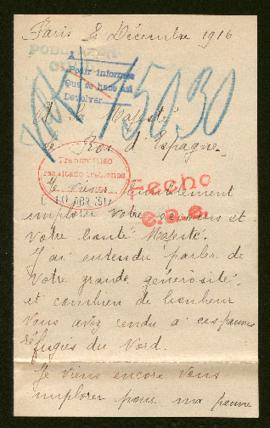 Paris 2 Décembre 1916
A
Pour informes
Que se hace así
Devolver
15030
A sa Majesté
Le Roi d'Espagne.
Transmítido
Je viens
Fecho
implorer votre
e.o.e.
votre bonté Majesté.
J'ai entendu parler de
votre grande générosité
et combien de bonheur
vous avez rendu à ces pauvres
réfugiés du Nord.
Je viens encore vous
implorer pour ma pauvre